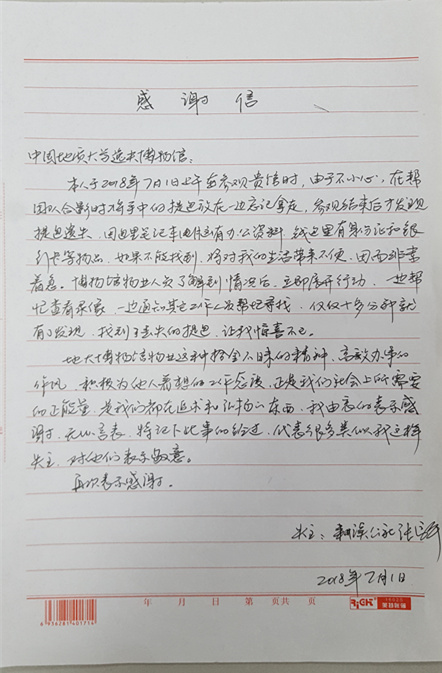 感谢信
中国地质大学逸夫博物馆:
本人于2018年7月1日上午在参观贵馆时,由于不小心,在帮
团队合影时将手中的提包放在一边忘记拿走,参观结束后才发现
提包遗失,因包里笔记本电脑有办公资料,钱包里有身份证和银
行卡等物品,如果不能找到,将对我的生活带来不便,因而非常
着急。博物馆物业人员了解到情况后,立即展开行动,一边帮
忙查看录像,一边通知其它工作人员帮忙寻找,仅仅十多分钟就
有了发现,找到了丢失的提包,让我惊喜不已。
地大博物馆物业这种拾金不昧的精神,高效办事的
作风,积极为他人着想的工作态度,正是我们社会上所需要
的正能量,是我们都在追求和弘扬的东西,我由衷的表示感
谢,无以言表,特记下此事的经过,代表很多类似我这样
失主,对他们表示敬意。
再次表示感谢。
失主:
2018年7月1日
年 月 日 第 页共 页
6936281401714